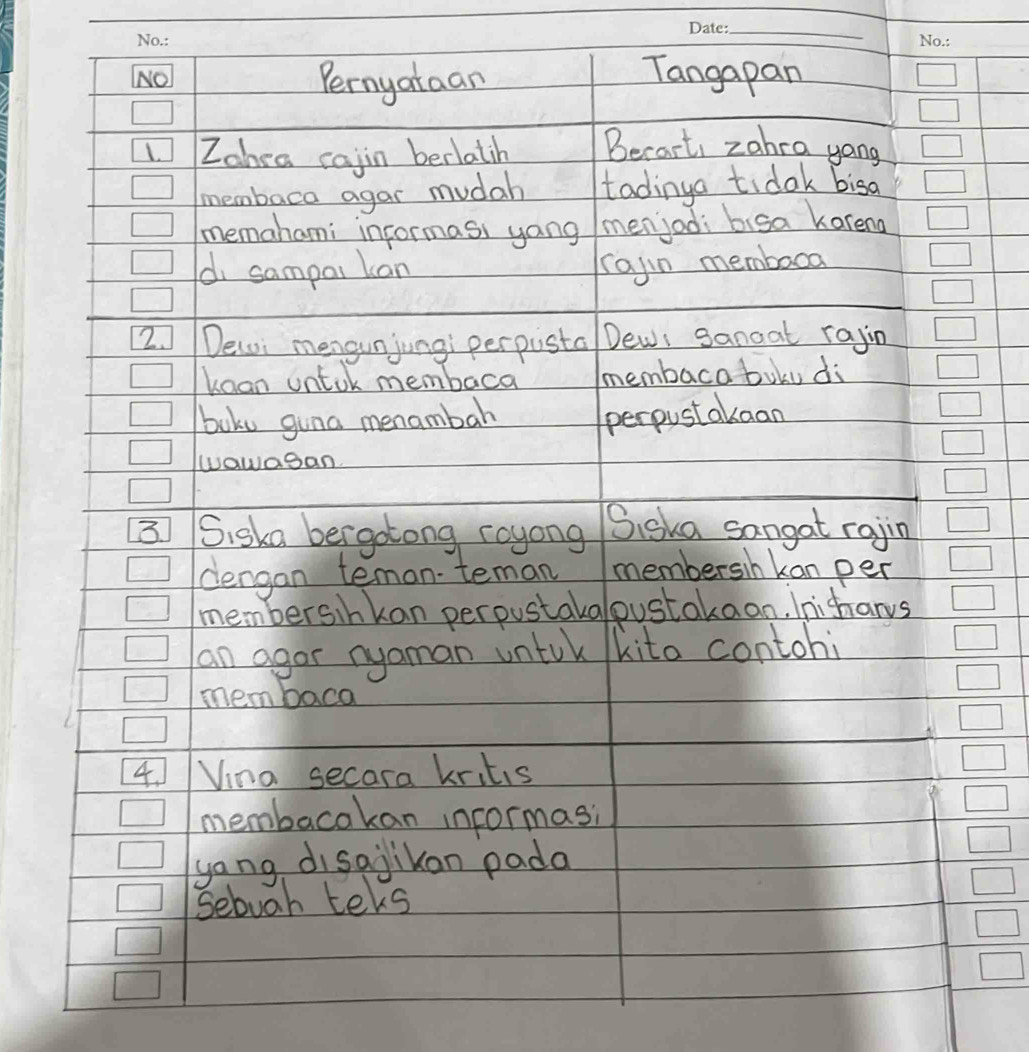 No.:
Date:
No.:
NO Pernyataan Tangapan
1. Zahra rajin berlatih Berarti zahra yang
membaca agar mudah tadinya tidak bisa
memahami informasi yang menjadi bisa karena
di sampai kan rajin membaca
2. Dewi mengunjungi perpusta Dewi sangat rajin
kaan untuk membaca membaca buku di
buku guna menambah perpustakaan
wawasan.
3. Siska bergotong royong Siska sangat rajin
dengan teman-teman membersih kan per
membersihkan perpustaka pustakaan. Ini harus
an agar nyaman untuk kita contohi
membaca
4. Vina secara kritis
membacakan informasi
yang disajikan pada
sebuah teks